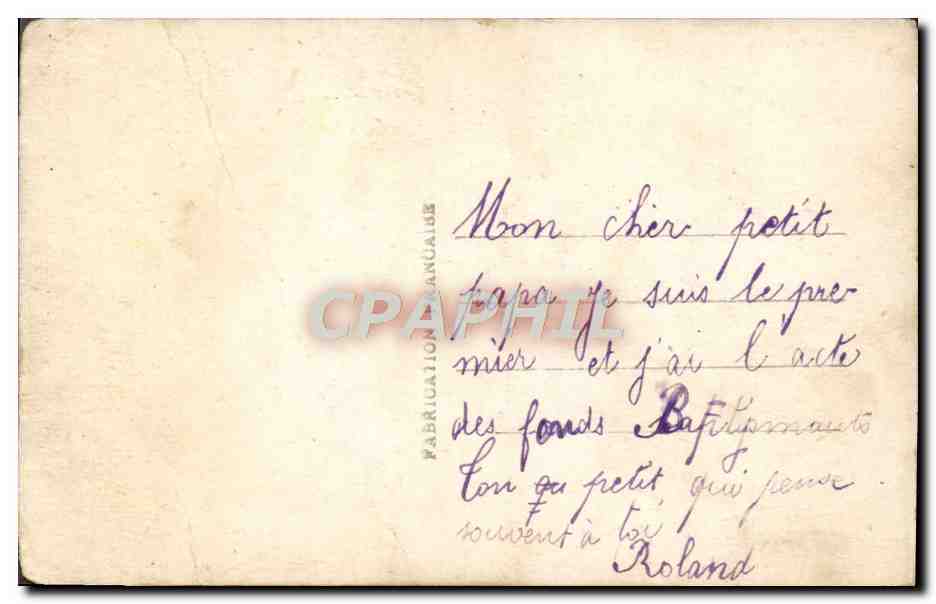 FABRICATION FRANCAISE
CPAPHIL
Mon cher petit
papa je suis le pre-
mier et j'ai l acte
des fonds
Ton petit qui pense
souvent à toi
Roland